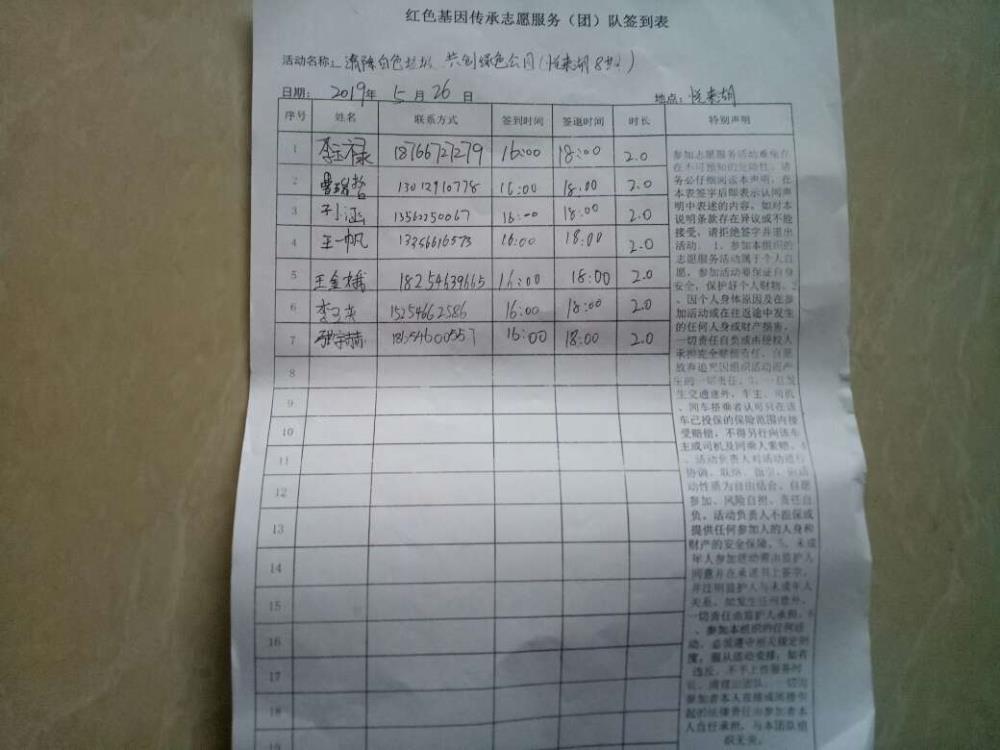 红色基因传承志愿服务（团）队签到表
活动名称：清除白色垃圾 共创绿色公园（悦来湖8期）
日期： 2019年 5月26日 地点：悦来湖
序号 姓名 联系方式 签到时间 签退时间 时长 特别声明
1 李玉禄 18766727279 16:00 18:00 2.0
2 13012910778 16:00 18:00 2.0
3 孙涵 13562250067 16:00 18:00 2.0
4 王一帆 13256616573 16:00 18:00 2.0
5 王金娥 18254639665 16:00 18:00 2.0
6 李子英 15254662586 16:00 18:00 2.0
7 张宇赫 18654600557 16:00 18:00 2.0
8
9
10
11
12
13
14
15
16
17
18
19
参加志愿服务活动难免存
在不可预知的危险性，请
务必仔细阅读本声明，在
本表签字后即表示认同声
明中表述的内容。如对本
说明条款存在异议或不能
接受，请拒绝签字并退出
活动。1、参加本组织的
志愿服务活动属于个人自
愿，参加活动要保证自身
安全，保护好个人财物。2
、因个人身体原因及在参
加活动或在往返途中发生
的任何人身或财产损害，
一切责任自负或由侵权人
承担完全赔偿责任，自愿
放弃追究因组织活动而产
生的一切责任。3、一旦发
生交通意外，车主、司机
、同车搭乘者认可只在该
车已投保的保险范围内接
受赔偿，不得另行向该车
主或司机及同乘人索赔。4
、活动负责人对活动进行
协调、联络、指引，但活
动性质为自由结合、自愿
参加、风险自担、责任自
负，活动负责人不担保或
提供任何参加人的人身和
财产的安全保险。5、未成
年人参加活动需由监护人
同意并在承诺书上签字，
并注明监护人与未成年人
关系，如发生任何意外，
一切责任由监护人承担。6
、参加本组织的任何活
动，必须遵守相关规定制
度，服从活动安排，如有
违反，不予上传服务时
参加者本人直接或间接引
起的法律责任由参加者本
人自行承担，与本团队组
织无关。